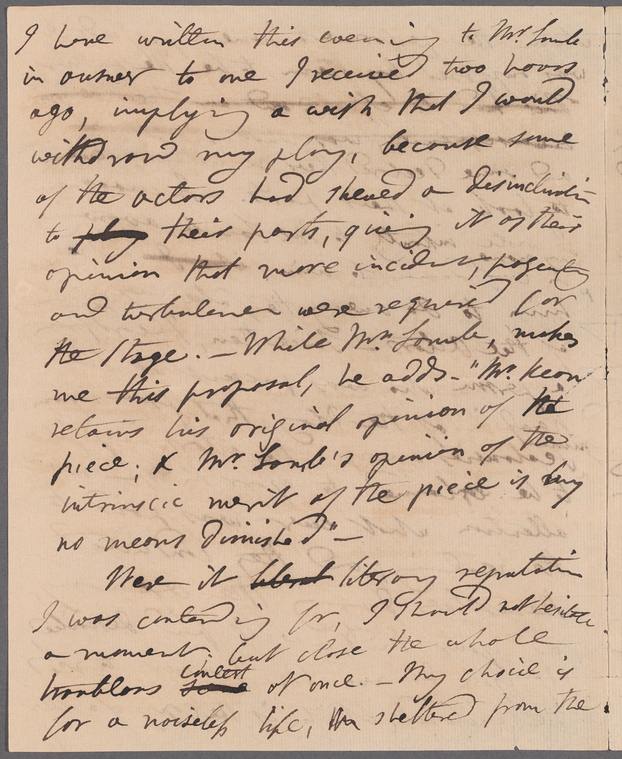 I have written this evening to Mr. Lamb
in answer to one I received two hours
ago, implying a wish that I would
withdraw my play, because some
of the actors had shewed a disinclinatin
to play their parts, giving it as their
opinion that more incident, pageantry
and turbulence were required for
the Stage. — While Mr. Lamb, makes
me this proposal, he adds - "Mr. Kean
retains his original opinion of the
piece; & Mr. Lamb's opinion of the
intrinscic merit of the piece is by
no means diminished" —
Were it literary reputation
I was contending for, I should not hesitate
a moment, but close the whole
troublous contest at once. — My choice is
for a noiseless life, sheltered from the